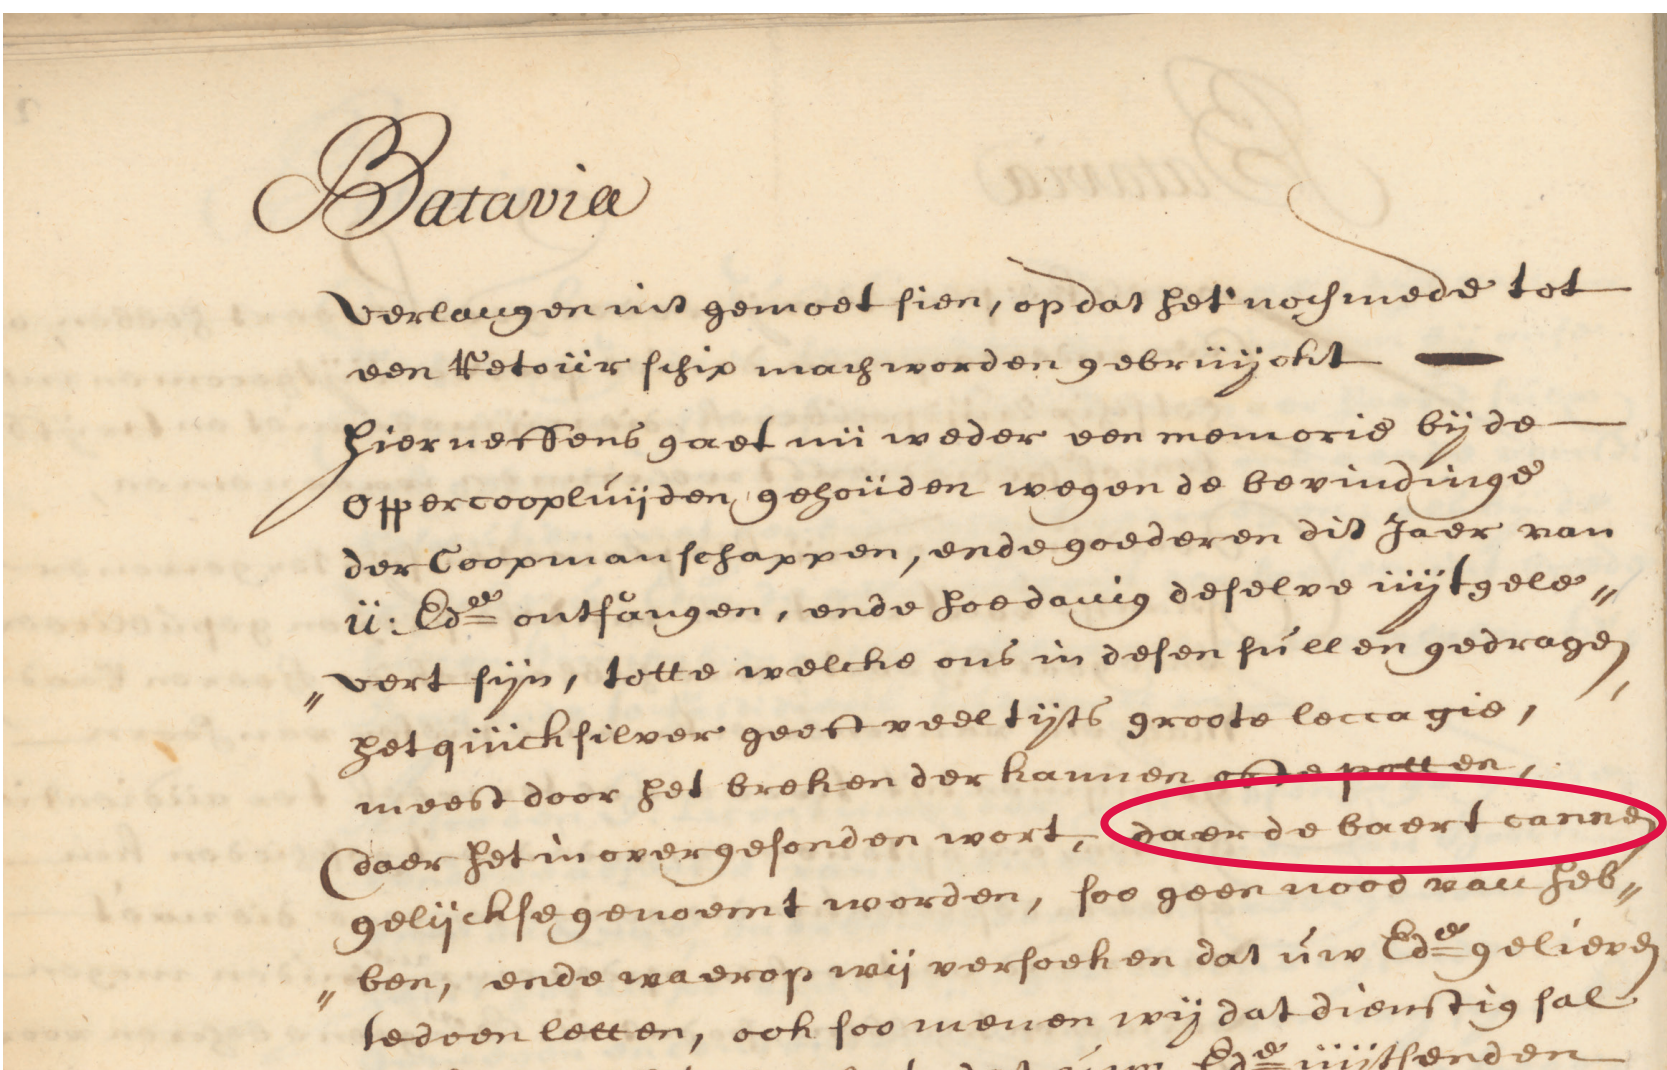 Batavia
verlangen int gemoet sien, op dat het noch mede tot
een Retoür schip mach worden gebrüijckt
hier neffens gaet nü weder een memorie bij de
oppercoopluijden gehoüden wegen de bevindinge
der Coopmanschappen, ende goederen dit Jaer van
ü: Ed.ee ontfangen, ende hoedanig deselve üijtgele„
„vert sijn, totte welcke ons in desen sullen gedragen,
het qüicksilver geeft veeltijts groote leccagie,
meest door het breken der kannen ofte potten,
daer het in overgesonden wort, daer de baert cannen
gelijckse genoemt worden, soo geen nood van heb„
„ben, ende waerop wij versoeken dat uw Ed.ee gelieven
te doen letten, ook soo menen wij dat dienstig sal
uw Ed.ee üijtsenden